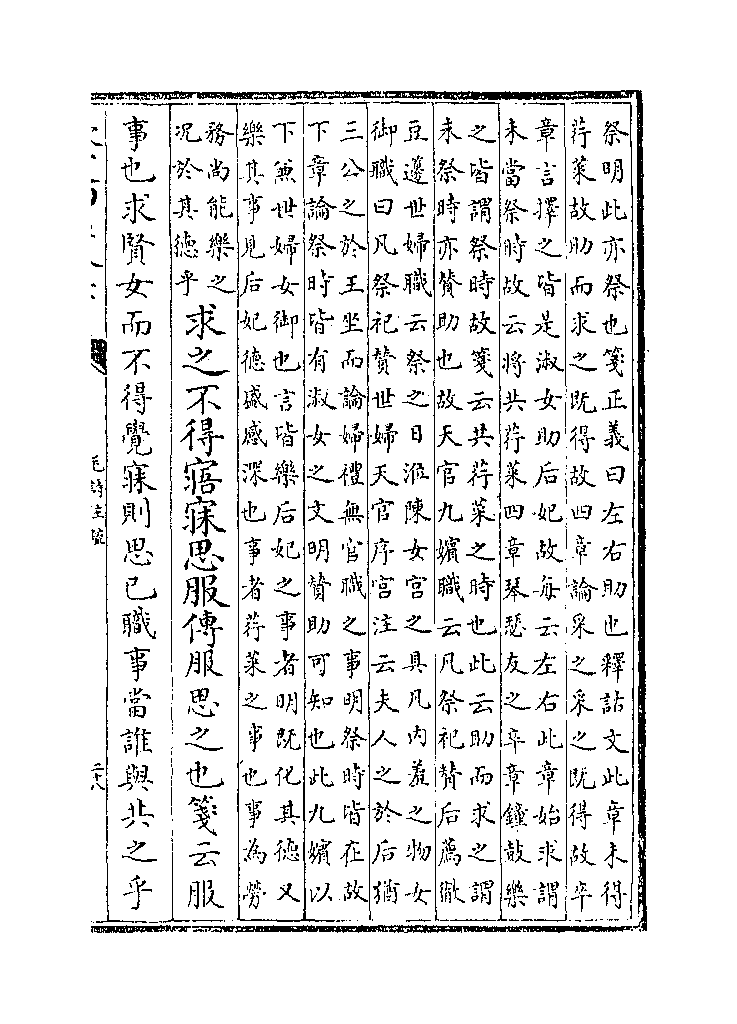 祭明此亦祭也箋正義曰左右助也釋詁文此章未得
荇菜故助而求之既得故四章論采之采之既得故卒
章言擇之皆是淑女助后妃故每云左右此章始求謂
未當祭時故云將共荇菜四章琴瑟友之卒章鐘鼓樂
之皆謂祭時故箋云共荇菜之時也此云助而求之謂
未祭時亦贊助也故天官九嬪職云凡祭祀贊后薦徹
豆籩世婦職云祭之日涖陳女宮之具凡内羞之物女
御職曰凡祭祀贊世婦天官序官注云夫人之於后猶
三公之於王坐而論婦禮無官職之事明祭時皆在故
下章論祭時皆有淑女之文明贊助可知也此九嬪以
下兼世婦女御也言皆樂后妃之事者明既化其德又
樂其事見后妃德盛感深也事者荇菜之事也事為勞
務尚能樂之
况於其德乎
求之不得寤寐思服傳服思之也箋云服
事也求賢女而不得覺寐則思已職事當誰與共之乎
毛詩注疏
二十八